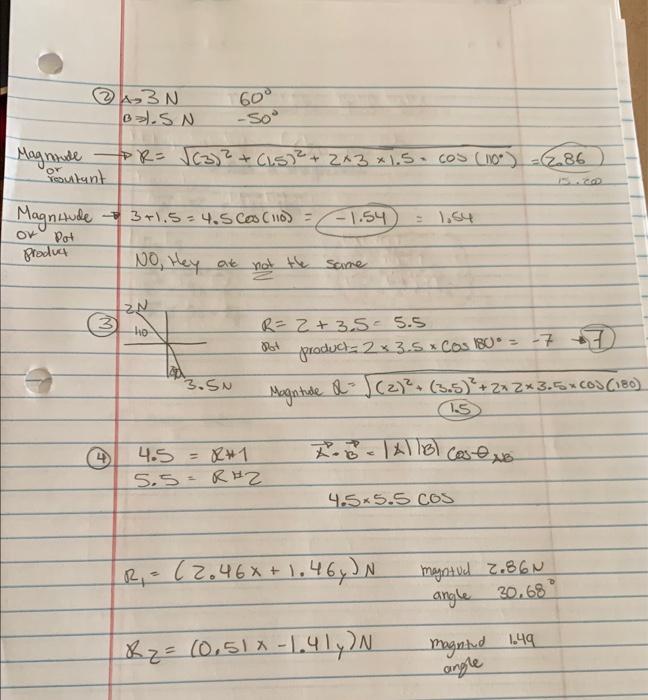 ② A→3N 60°
B→1.5N -50°
Magnitude or resultant → R= √(3)² + (1.5)² + 2×3×1.5 · cos (110°) = 2.86
Magnitude or Dot product → 3+1.5 = 4.5 cos(110) = -1.54 = 1.54
NO, they are not the same
③ 2N
110
3.5N
R= 2 + 3.5 = 5.5
Dot product = 2 × 3.5 × cos 180° = -7 → 7
Magnitude R= √(2)² + (3.5)² + 2×2×3.5×cos(180)
1.5
④ 4.5 = R#1 A·B = |A||B| cosθ AB
5.5 = R#2
4.5×5.5 cos
R₁ = (2.46x + 1.46y)N magntud 2.86N
angle 30.68°
R2 = (0.51x -1.41y)N magntud 1.49
angle